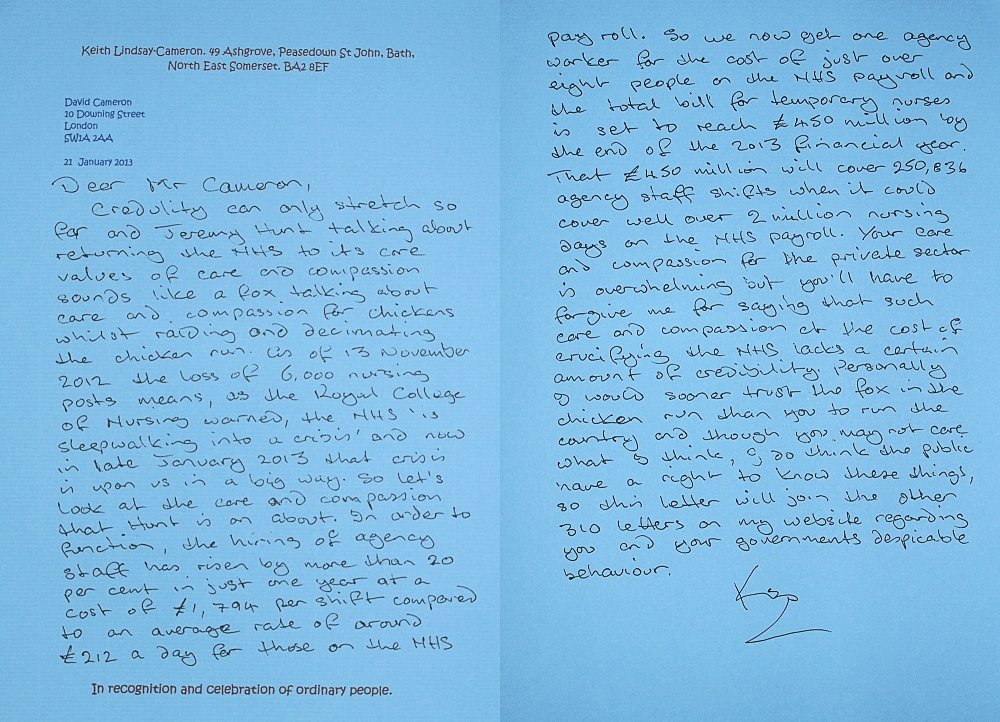 Keith Lindsay-Cameron. 49 Ashgrove, Peasedown St John, Bath,
North East Somerset. BA2 8EF
David Cameron
10 Downing Street
London
SW1A 2AA
21 January 2013
Dear Mr Cameron,
Credulity can only stretch so
far and Jeremy Hunt talking about
returning the NHS to its core
values of care and compassion
sounds like a fox talking about
care and compassion for chickens
whilst raiding and decimating
the chicken run. As of 13 November
2012 the loss of 6,000 nursing
posts means, as the Royal College
of Nursing warned, the NHS 'is
sleepwalking into a crisis' and now
in late January 2013 that crisis
is upon us in a big way. So let's
look at the care and compassion
that Hunt is on about. In order to
function, the hiring of agency
staff has risen by more than 20
per cent in just one year at a
cost of £1,794 per shift compared
to an average rate of around
£212 a day for those on the NHS
In recognition and celebration of ordinary people.
payroll. So we now get one agency
worker for the cost of just over
eight people on the NHS payroll and
the total bill for temporary nurses
is set to reach £450 million by
the end of the 2013 financial year.
That £450 million will cover 250,836
agency staff shifts when it could
cover well over 2 million nursing
days on the NHS payroll. Your care
and compassion for the private sector
is overwhelming but you'll have to
forgive me for saying that such
care and compassion at the cost of
crucifying the NHS lacks a certain
amount of credibility. Personally
I would sooner trust the fox in the
chicken run than you to run the
country and though you may not care
what I think, I do think the public
have a right to know these things,
so this letter will join the other
310 letters on my website regarding
you and your governments despicable
behaviour.